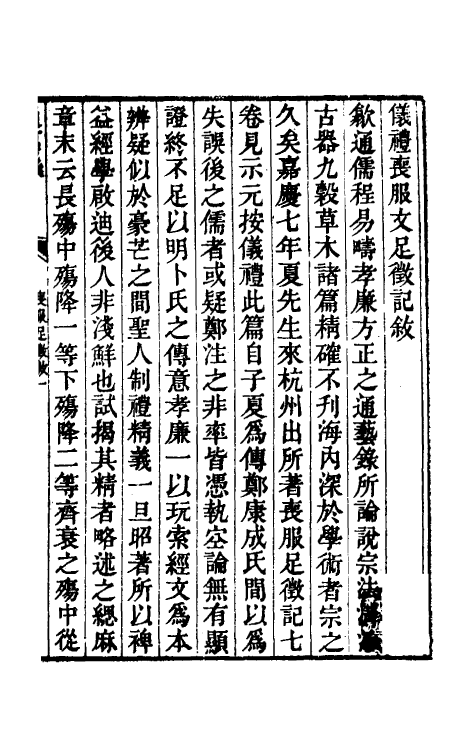 儀禮喪服文足徵記敘
歙通儒程易疇孝廉方正之通藝錄所論說宗法溝洫
古器九穀草木諸篇精確不刋海內深於學術者宗之
久矣嘉慶七年夏先生來杭州出所著喪服足徵記七
卷見示元按儀禮此篇自子夏爲傳鄭康成氏間以爲
失誤後之儒者或疑鄭注之非率皆憑執空論無有顯
證終不足以明卜氏之傳意孝廉一以玩索經文爲本
辨疑似於豪芒之間聖人制禮精義一旦昭著所以裨
益經學啟迪後人非淺鮮也試揭其精者略述之緦麻
章末云長殤中殤降一等下殤降二等齊衰之殤中從
喪服足徵敘一